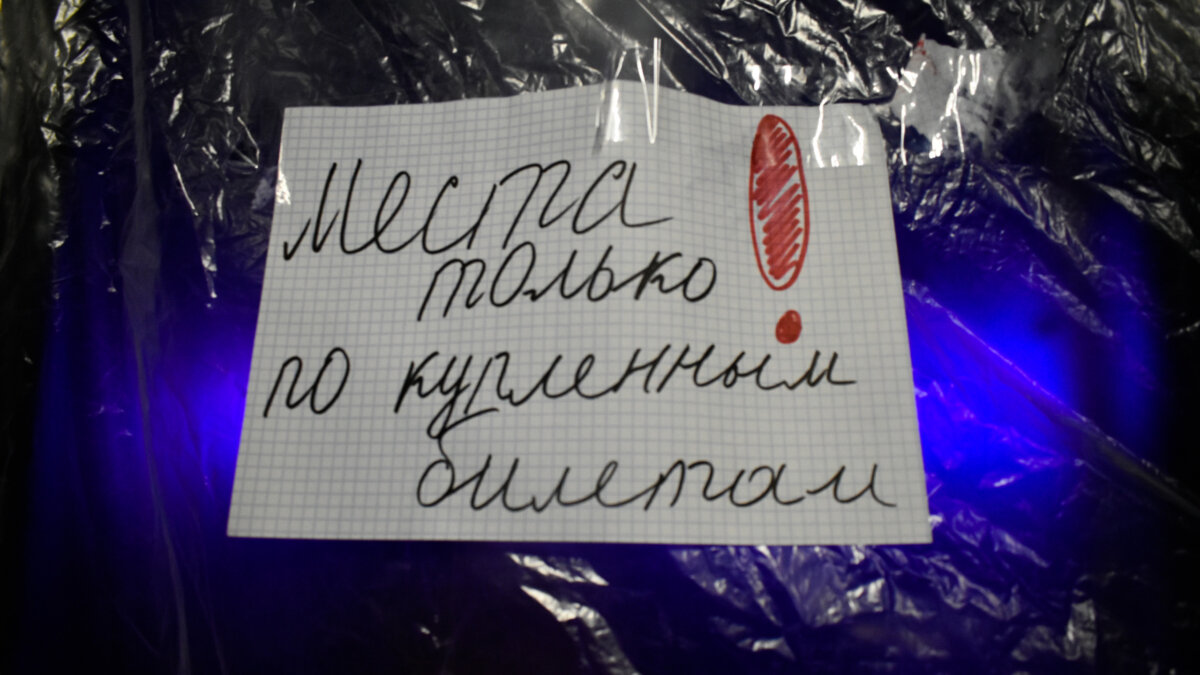 Места !
только
по купленным
билетам